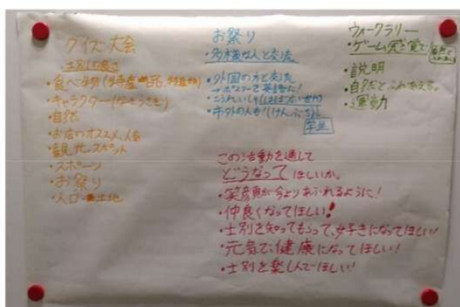 クイズ大会
士別の良さ
・食べ物(特産品、
・キャラクター(
・自然
・お店のオススメ、人気
・観光スポット
・スポーツ
・お祭り
・人口・土地
お祭り
・多様な人と交流
・外国の方と交流
→ポスターを英語に!
学生
ウォークラリー
・ゲーム
・説明
・自然とふれあえる。
・運動
この活動を通して
どうなってほしいか。
・笑顔が今よりあふれるように!
・仲良くなってほしい!
・士別を知ってもらって、好きになってほしい!
・元気で、健康になってほしい!
・士別を楽しんでほしい!